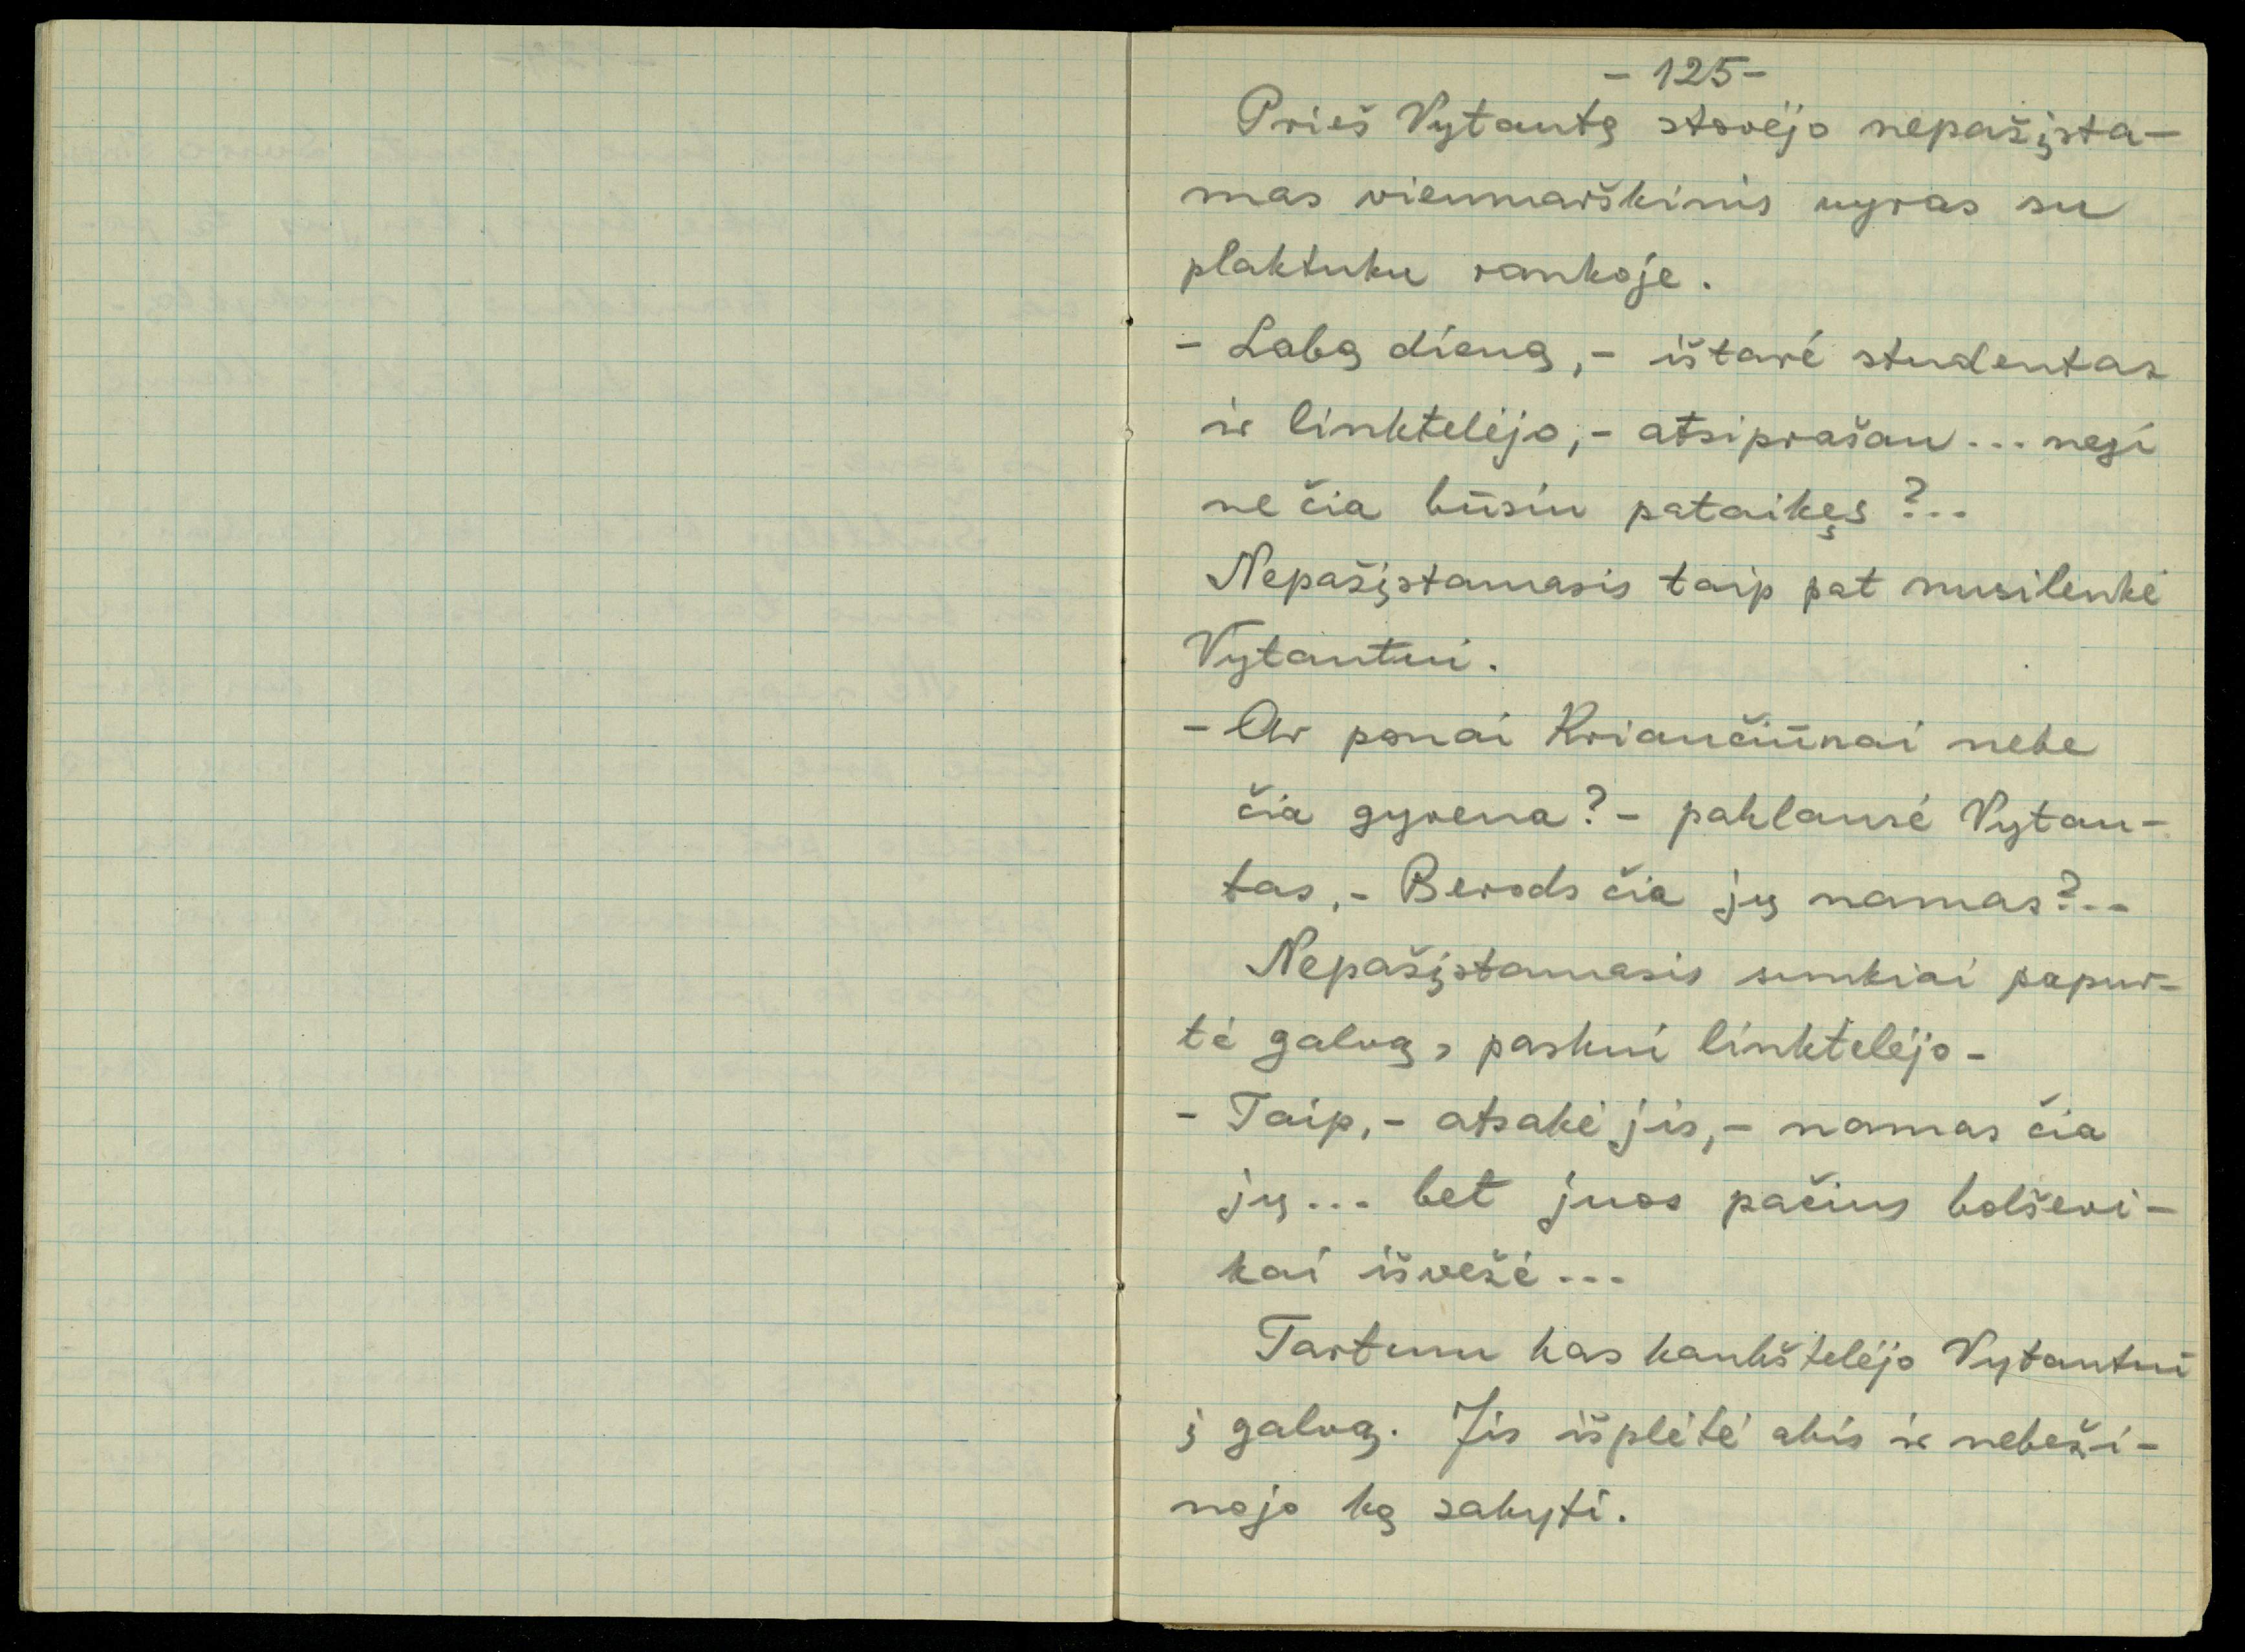 - 125 -
Prieš Vytautą stovėjo nepažįsta-
mas vienmarškinis vyras su
plaktuku rankoje.
- Labą dieną,- ištarė studentas
ir linktelėjo,- atsiprašau... negi
ne čia būsiu pataikęs?..
Nepažįstamasis taip pat nusilenkė
Vytautui.
- Ar ponai Kriaučiūnai nebe
čia gyvena? - paklausė Vytau-
tas,- Berods čia jų namas?..
Nepažįstamasis sunkiai papur-
tė galvą, paskui linktelėjo -
- Taip,- atsakė jis,- namas čia
jų... bet juos pačius bolševi-
kai išvežė...
Tartum kas kaukštelėjo Vytautui
į galvą. Jis išplėtė akis ir nebeži-
nojo ką sakyti.